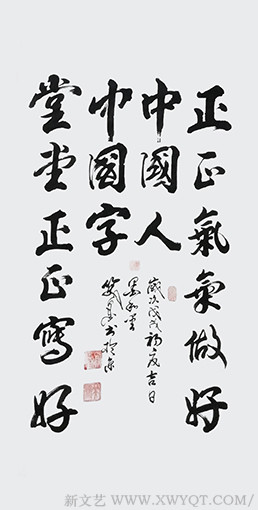 正正氣氣做好
中國人
堂堂正正寫好
中國字
歲次戊戌初夏吉日
新文艺 WWW.XWYQT.COM/